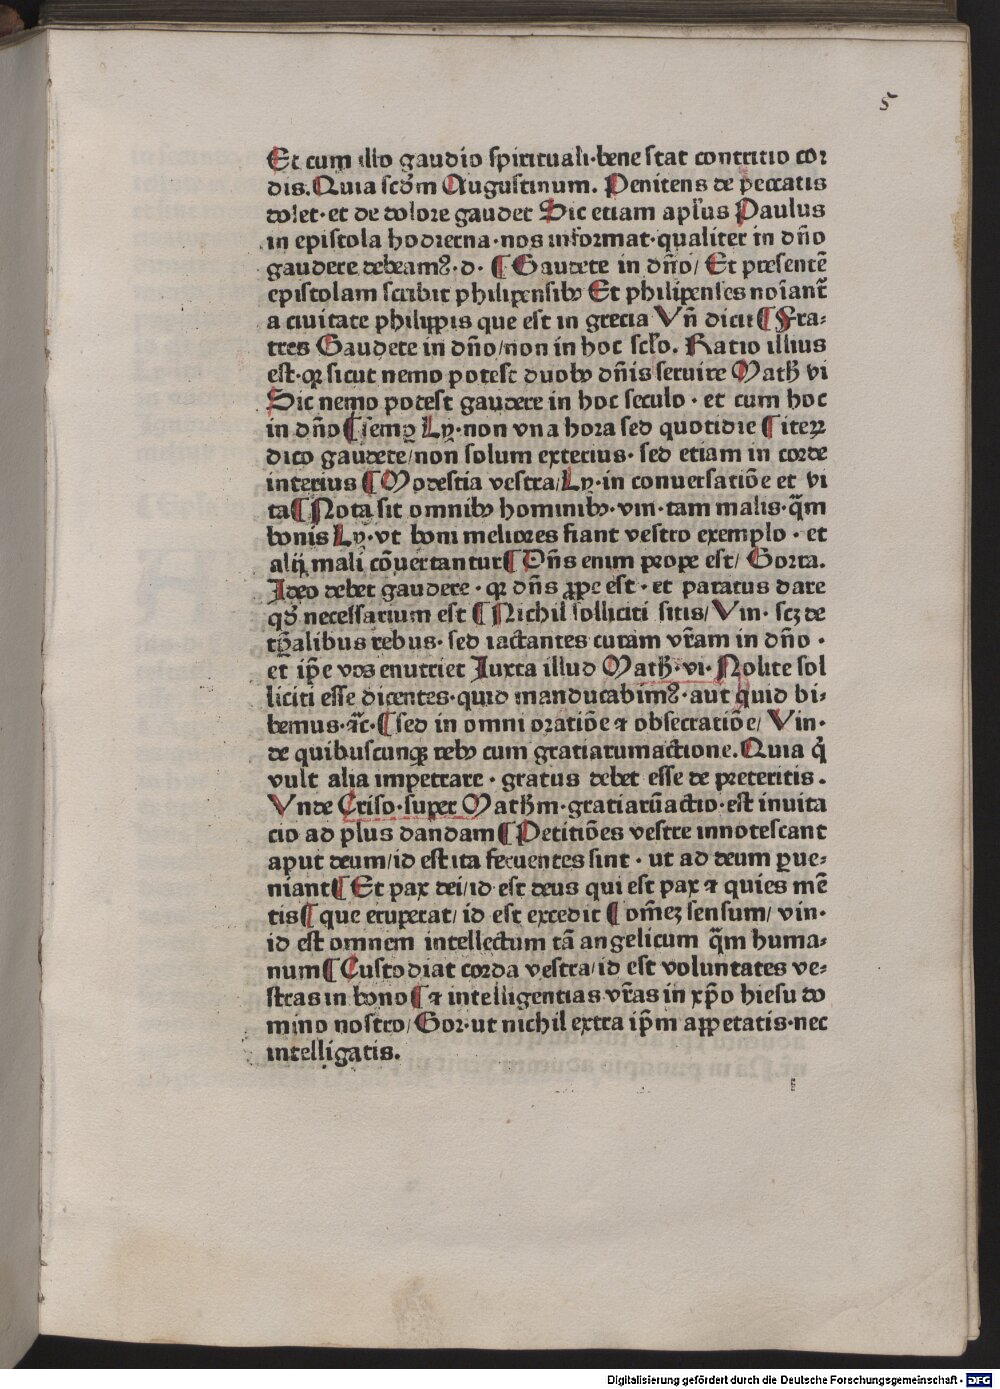 5
Et cum illo gaudio spirituali·bene stat contritio cor
dis. Quia scďm Augustinum. Penitens de peccatis
dolet·et de dolore gaudet Sic etiam aplꝰus Paulus
in epistola hodierna·nos informat·qualiter in dño
gaudere debeamꝰ·d·¶Gaudete in dño/ Et presentē
epistolam scribit philipensibꝰ Et philipenses noīant᷑
a ciuitate philippis que est in grecia Vñ dicit¶Fra⸗
tres Gaudete in dño/non in hoc sclo. Ratio illius
est·qꝛ sicut nemo potest duobꝰ dñis seruire Math vi
Sic nemo potest gaudere in hoc seculo·et cum hoc
in dño¶semꝑ Ly·non vna hora sed quotidie¶iteꝝ
dico gaudete/non solum exterius·sed etiam in corde
interius¶Modestia vestra/Ly·in conuersatiōe et vi
ta¶Nota sit omnibꝰ hominibꝰ·vin·tam malis·q̄m
bonis Ly·vt boni meliores fiant vestro exemplo·et
alij mali cōuertantur¶Dñs enim prope est/ Gorra.
Ideo debet gaudere·qꝛ dñs ꝓpe est·et paratus dare
qď necessarium est¶Nichil solliciti sitis/ Vin·scꝫ de
tp̄alibus rebus·sed iactantes curam vr̄am in dño·
et ip̄e vos enutriet Iuxta illud Math·vi·Nolite sol
liciti esse dicentes·quid manducabimꝰ·aut quid bi⸗
bemus·⁊c·¶sed in omni oratiōe ⁊ obsecratiōe/ Vin·
de quibuscunqꝫ rebꝰ cum gratiarumactione. Quia q̇
vult alia impetrare·gratus debet esse de preteritis.
Vnde Criso·super Mathm·gratiarūactio·est inuita
tio ad plus dandam¶Petitiōes vestre innotescant
aput deum/id est ita frecuentes sint·ut ad deum ꝑue⸗
niant¶Et pax dei/id est deus qui est pax ⁊ quies mē
tis¶que exuperat/ id est excedit¶om̄eꝫ sensum/ vin·
id est omnem intellectum tā angelicum q̄m huma⸗
num¶Custodiat corda vestra/id est voluntates ve⸗
stras in bono¶⁊ intelligentias vr̄as in xp̄o hiesu do
mino nostro/ Gor·ut nichil extra ip̄m appetatis·nec
intelligatis.
Digitalisierung gefördert durch die Deutsche Forschungsgemeinschaft - DFG